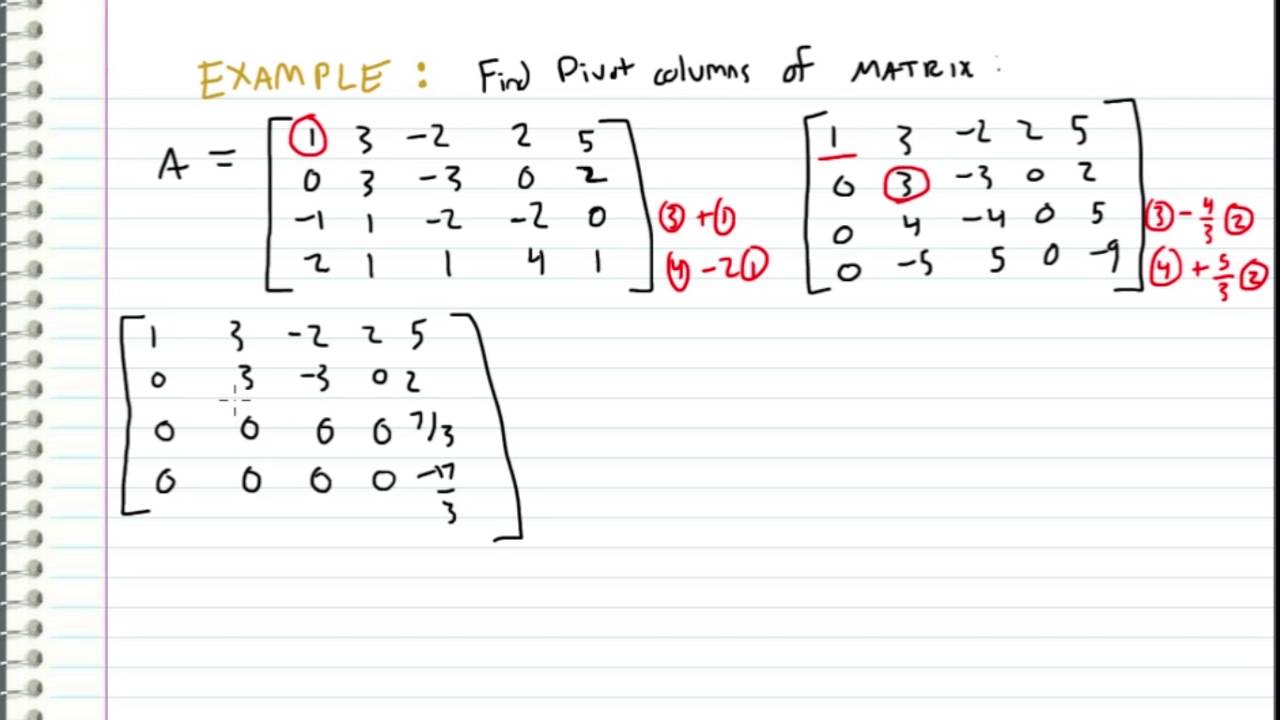 EXAMPLE : Find Pivot columns of MATRIX :
A = [ 1 3 -2 2 5
0 3 -3 0 2
-1 1 -2 -2 0 ③ + ①
2 1 1 4 1 ] ④ - 2①
[ 1 3 -2 2 5
0 3 -3 0 2
0 4 -4 0 5 ③ - 4/3 ②
0 -5 5 0 -9 ] ④ + 5/3 ②
[ 1 3 -2 2 5
0 3 -3 0 2
0 0 0 0 7/3
0 0 0 0 -17/3 ]